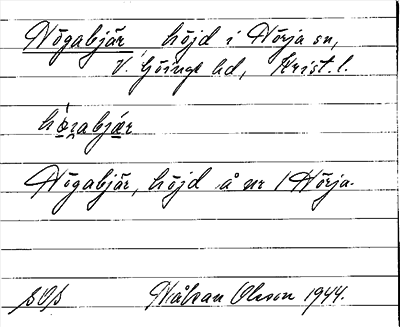 Högabjär, höjd i Hörja sn,
V. Göinge hd, Krist. l.
Högabjär, höjd å nr 1 Hörja.
Håkan Olsson 1944.